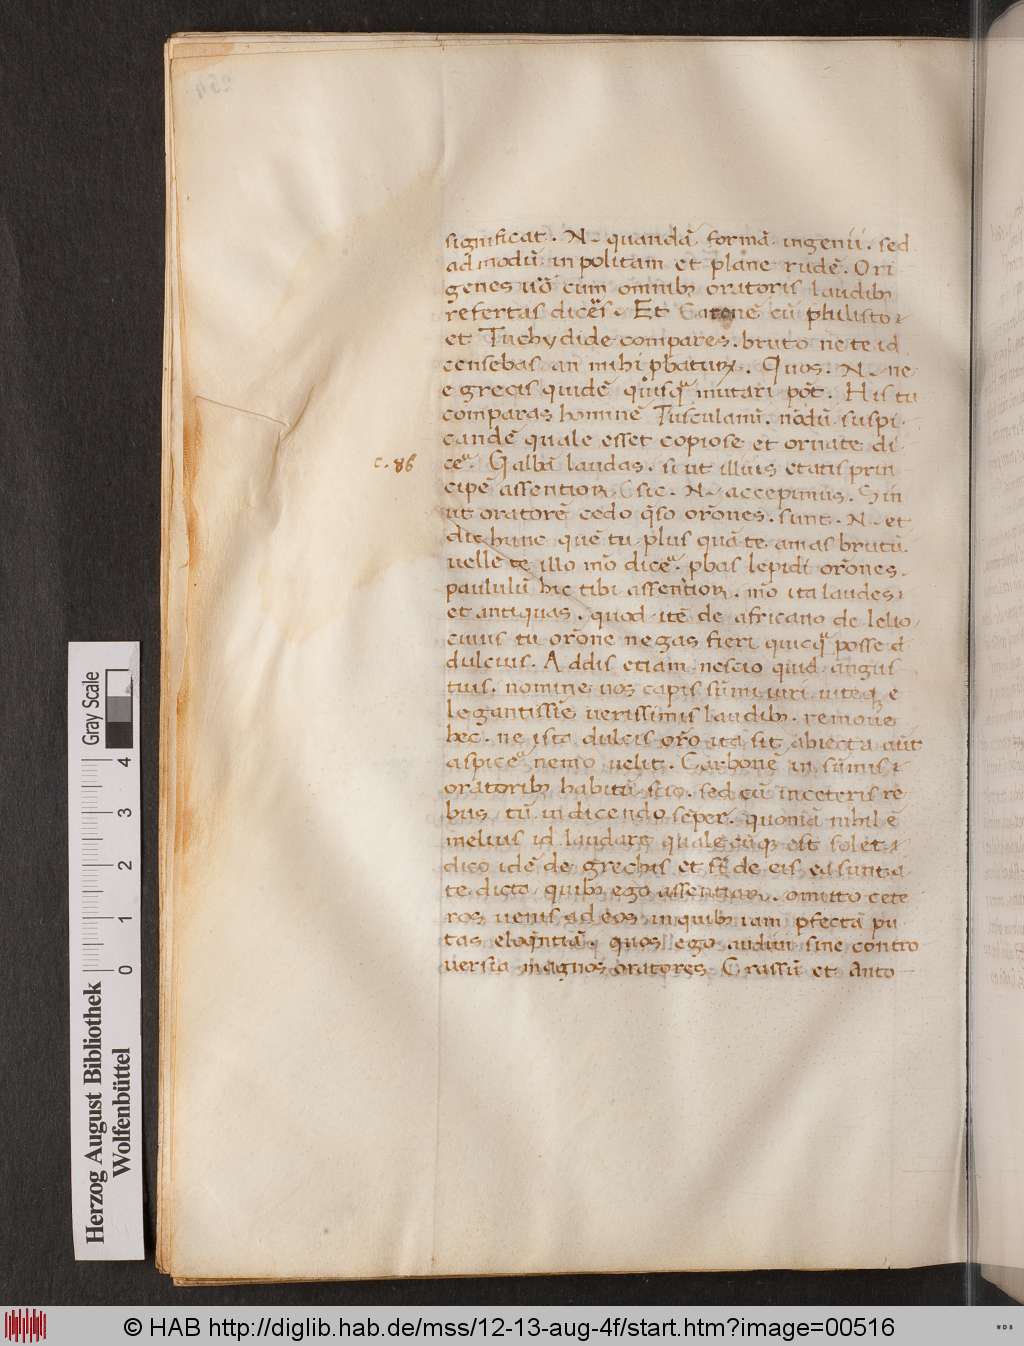 significat. N. quandā formā ingenii. sed
admodū inpolitam et plane rudē. Ori
genes uō cum omnibꝫ oratoris laudibꝫ
refertas dicēs. Et Catonē cū philisto
et Tuchydide compares. bruto ne te id
censebas an mihi pbaturꝫ. Quos. N. ne
e grecis quidē quisqͣ mutari pōt. His tu
comparas hominē Tusculanū. nōdū suspi
candē quale esset copiose et ornate di
ceͣ. Galbā laudas. si ut illius etatis prin
c. 86
cipē assentior. sic. N. accepimus. Sin
ut oratorē cedo q̄so orōnes. sunt. N. et
dic hunc quē tu plus quā te amas brutū.
uelle te illo mō diceͣ. pbas lepidi orōnes.
paululū hic tibi assentior. mō ita laudes
et antiquas. quod itē de africano de lelio
cuius tu orōne negas fieri quicqͣ posse
dulcius. Addis etiam nescio quid angus
tius. nomine nos capis sūmi uiri uiteqꝫ e
legantissīe uerissimis laudibꝫ. remoue
hec. ne ista dulcis orō ita sit abiecta aut
aspiceͣ nemo uelit. Carbonē in sūmis
oratoribꝫ habitū scio. sed cū in ceteris re
bus tū in dicendo sēper. quoniā nihil ē
melius id laudare qualecūqꝫ est solet.
dico idē de grechis et si de eis ea sunt a
te dicta quibꝫ ego assentior. omitto cete
ros uenis ad eos in quibꝫ iam pfectā pu
tas eloq̄ntiā. quos ego audiui sine contro
uersia magnos oratores. Crassū et Anto
Gray Scale
0 1 2 3 4
Herzog August Bibliothek
Wolfenbüttel
© HAB http://diglib.hab.de/mss/12-13-aug-4f/start.htm?image=00516